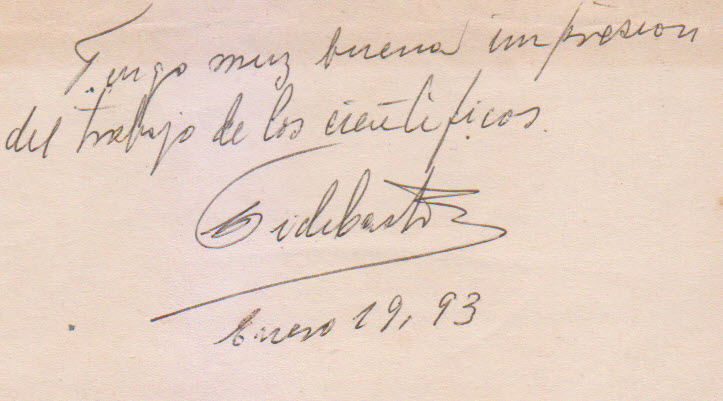 Tengo muy buena impresion
del trabajo de los científicos.
Fidel Castro
Enero 19, 93